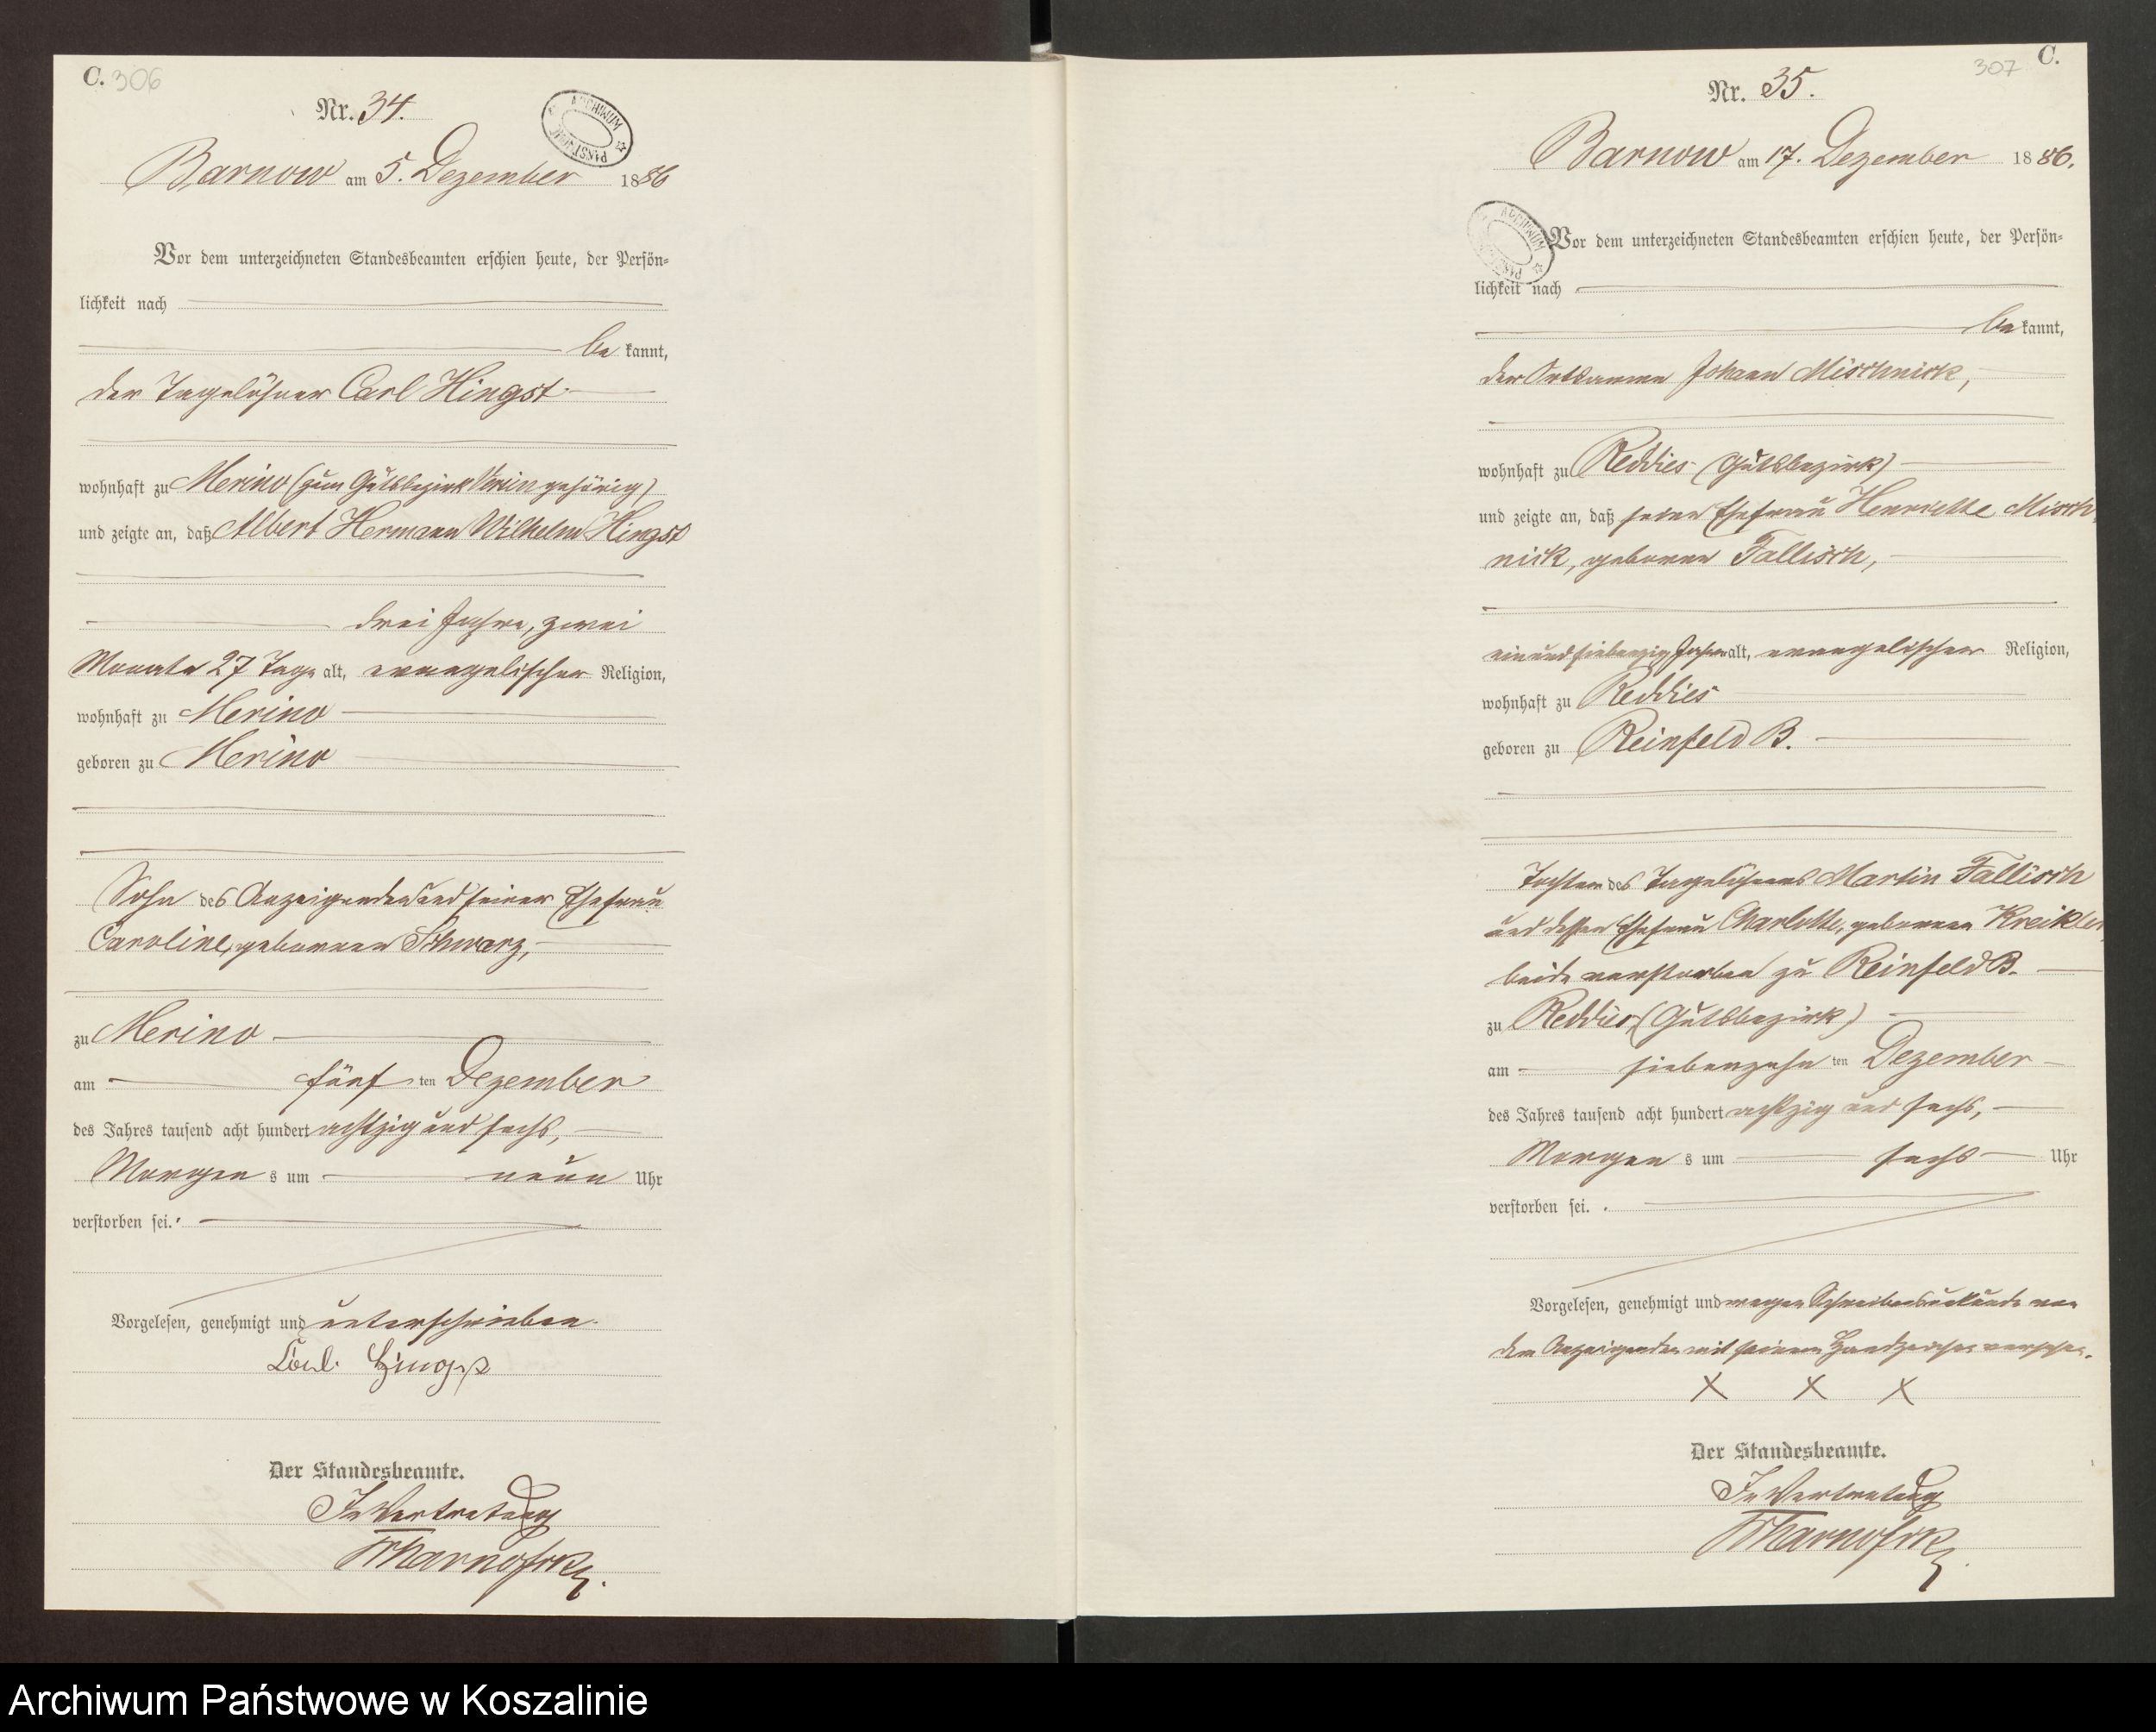 C. 306
Nr. 34.
ARCHIWUM PAŃSTWOWE
Barnow am 5. Dezember 1886
Vor dem unterzeichneten Standesbeamten erschien heute, der Persön=
lichkeit nach
be kannt,
der Tagelöhner Carl Hingst
wohnhaft zu Merino (zum Gutsbezirk gehörig)
und zeigte an, daß Albert Hermann Wilhelm Hingst
drei Jahre, zwei
Monate 27 Tage alt, evangelischer Religion,
wohnhaft zu Merino
geboren zu Merino
Sohn des Anzeigenden und seiner Ehefrau
Caroline, geborenen Schwarz,
zu Merino
am fünf ten Dezember
des Jahres tausend acht hundert achtzig und sechs,
Morgen s um neun Uhr
verstorben sei.
Vorgelesen, genehmigt und unterschrieben.
Carl Hingst
Der Standesbeamte.
In Vertretung
307 C.
Nr. 35.
ARCHIWUM
Barnow am 17. Dezember 1886.
Vor dem unterzeichneten Standesbeamten erschien heute, der Persön=
lichkeit nach
be kannt,
der Ortsarme Johann Mischnick,
wohnhaft zu Reddies (Gutsbezirk)
und zeigte an, daß seine Ehefrau Henriette Misch
nick, geborene Fallisch,
einundsiebenzig Jahre alt, evangelischer Religion,
wohnhaft zu Reddies
geboren zu Reinfeld B.
Tochter des Tagelöhners Martin Fallisch
und dessen Ehefrau Charlotte, geborenen
beide verstorben zu Reinfeld B.
zu Reddies, (Gutsbezirk)
am siebenzehn ten Dezember
des Jahres tausend acht hundert achtzig und sechs,
Morgen s um sechs Uhr
verstorben sei.
Vorgelesen, genehmigt und wegen Schreibensunkunde von
dem Anzeigenden mit seinem Handzeichen versehen.
X X X
Der Standesbeamte.
In Vertretung
Archiwum Państwowe w Koszalinie